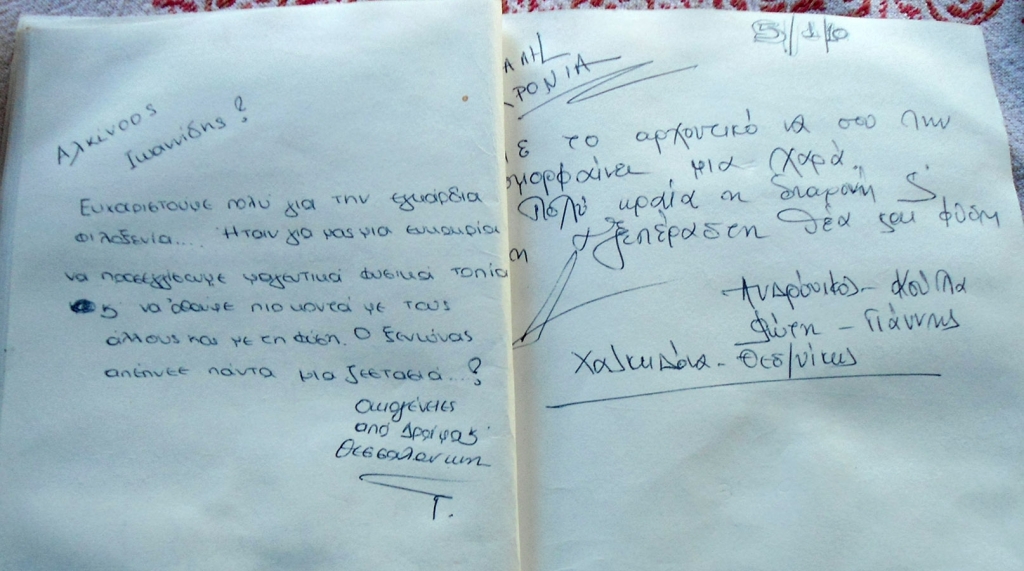 Αλκίνοος
Ιωαννίδης?
Ευχαριστούμε πολύ για την εγκάρδια
φιλοξενία.... Ήταν για μας μια ευκαιρία
να προσεγγίσουμε μαγευτικά φυσικά τοπία
να έρθουμε πιο κοντά με τους
άλλους και με τη φύση. Ο ξενώνας
απέπνεε πάντα μια ζεστασιά...?
Οικογένειες
από Δρυμός
Θεσσαλονίκη
Τ.
5/1/10
ΡΟΝΙΑ
το αρχοντικό να σου την
ομορφαίνει μια χαρά.
Πολύ ωραία η διαμονή
ξεπέραση θέα και φύση
Ανδρόνικος - Κούλα
Φώτη - Γιάννης
Χαλκηδόνα - Θεσ/νίκης